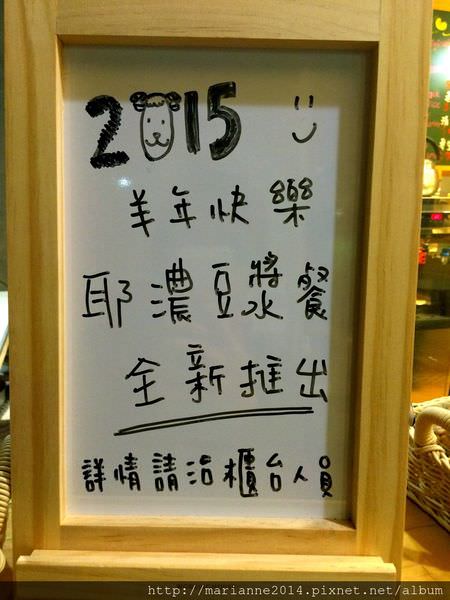 2015
羊年快樂
耶濃豆漿餐
全新推出
詳情請洽櫃台人員
http://marianne2014.pixnet.net/album